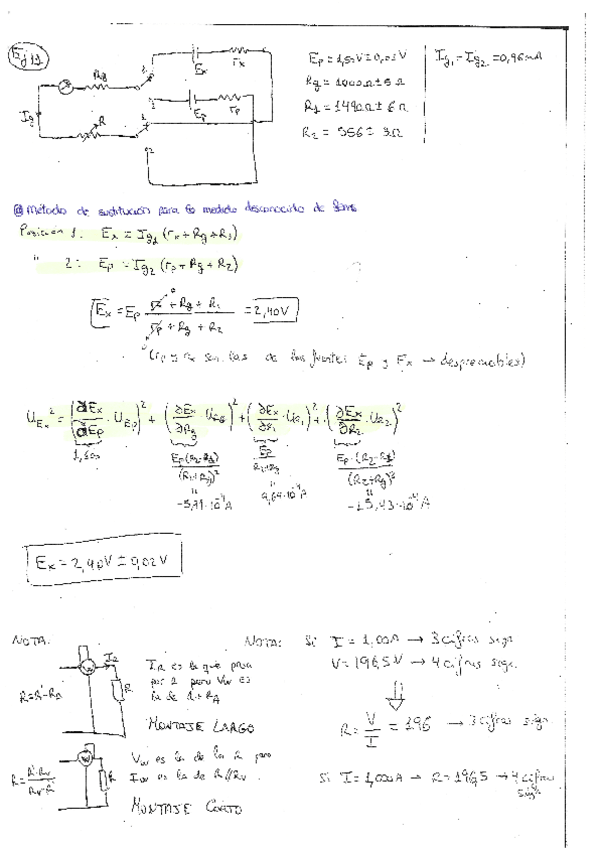 Ej 12
Rg
Ig
R
1
2
1
2
Ex
rx
Ep
rp
Ep = 1,50V ± 0,01V
Rg = 1000Ω ± 5Ω
R1 = 1490Ω ± 6Ω
R2 = 556 ± 3Ω
Ig1 = Ig2 = 0,96mA
@ Método de sustitución para la medida desconocida de fems
Posición 1: Ex = Ig1 (rx + Rg + R1)
" 2: Ep = Ig2 (rp + Rg + R2)
Ex = Ep (rx + Rg + R1) / (rp + Rg + R2) = 2,40V
(rp y rx son las de las fuentes Ep y Ex → despreciables)
U_Ex² = (∂Ex/∂Ep · U_Ep)² + (∂Ex/∂Rg · U_RG)² + (∂Ex/∂R1 · U_R1)² + (∂Ex/∂R2 · U_R2)²
1,600
Ep(R2-R1) / (R2+Rg)²
Ep / R2+Rg
Ep·(R2-R1) / (R2+Rg)²
-5,79·10⁻⁴A
9,64·10⁻⁴A
-15,43·10⁻⁴A
Ex = 2,40V ± 0,02V
NOTA:
R=R'-RA
IR
R
IR es la que pasa
por R pero Vw es
la de R+RA
MONTAJE LARGO
R = R'·Rv / Rv-R'
R
Vw es la de la R pero
Iw es la de R//Rv.
MONTAJE CORTO
NOTA: Si I = 1,00A → 3 cifras sign
V = 196,5V → 4 cifras sign.
R = V/I = 196 → 3 cifras sign
Si I = 1,000A → R = 196,5 → 4 cifras
sign